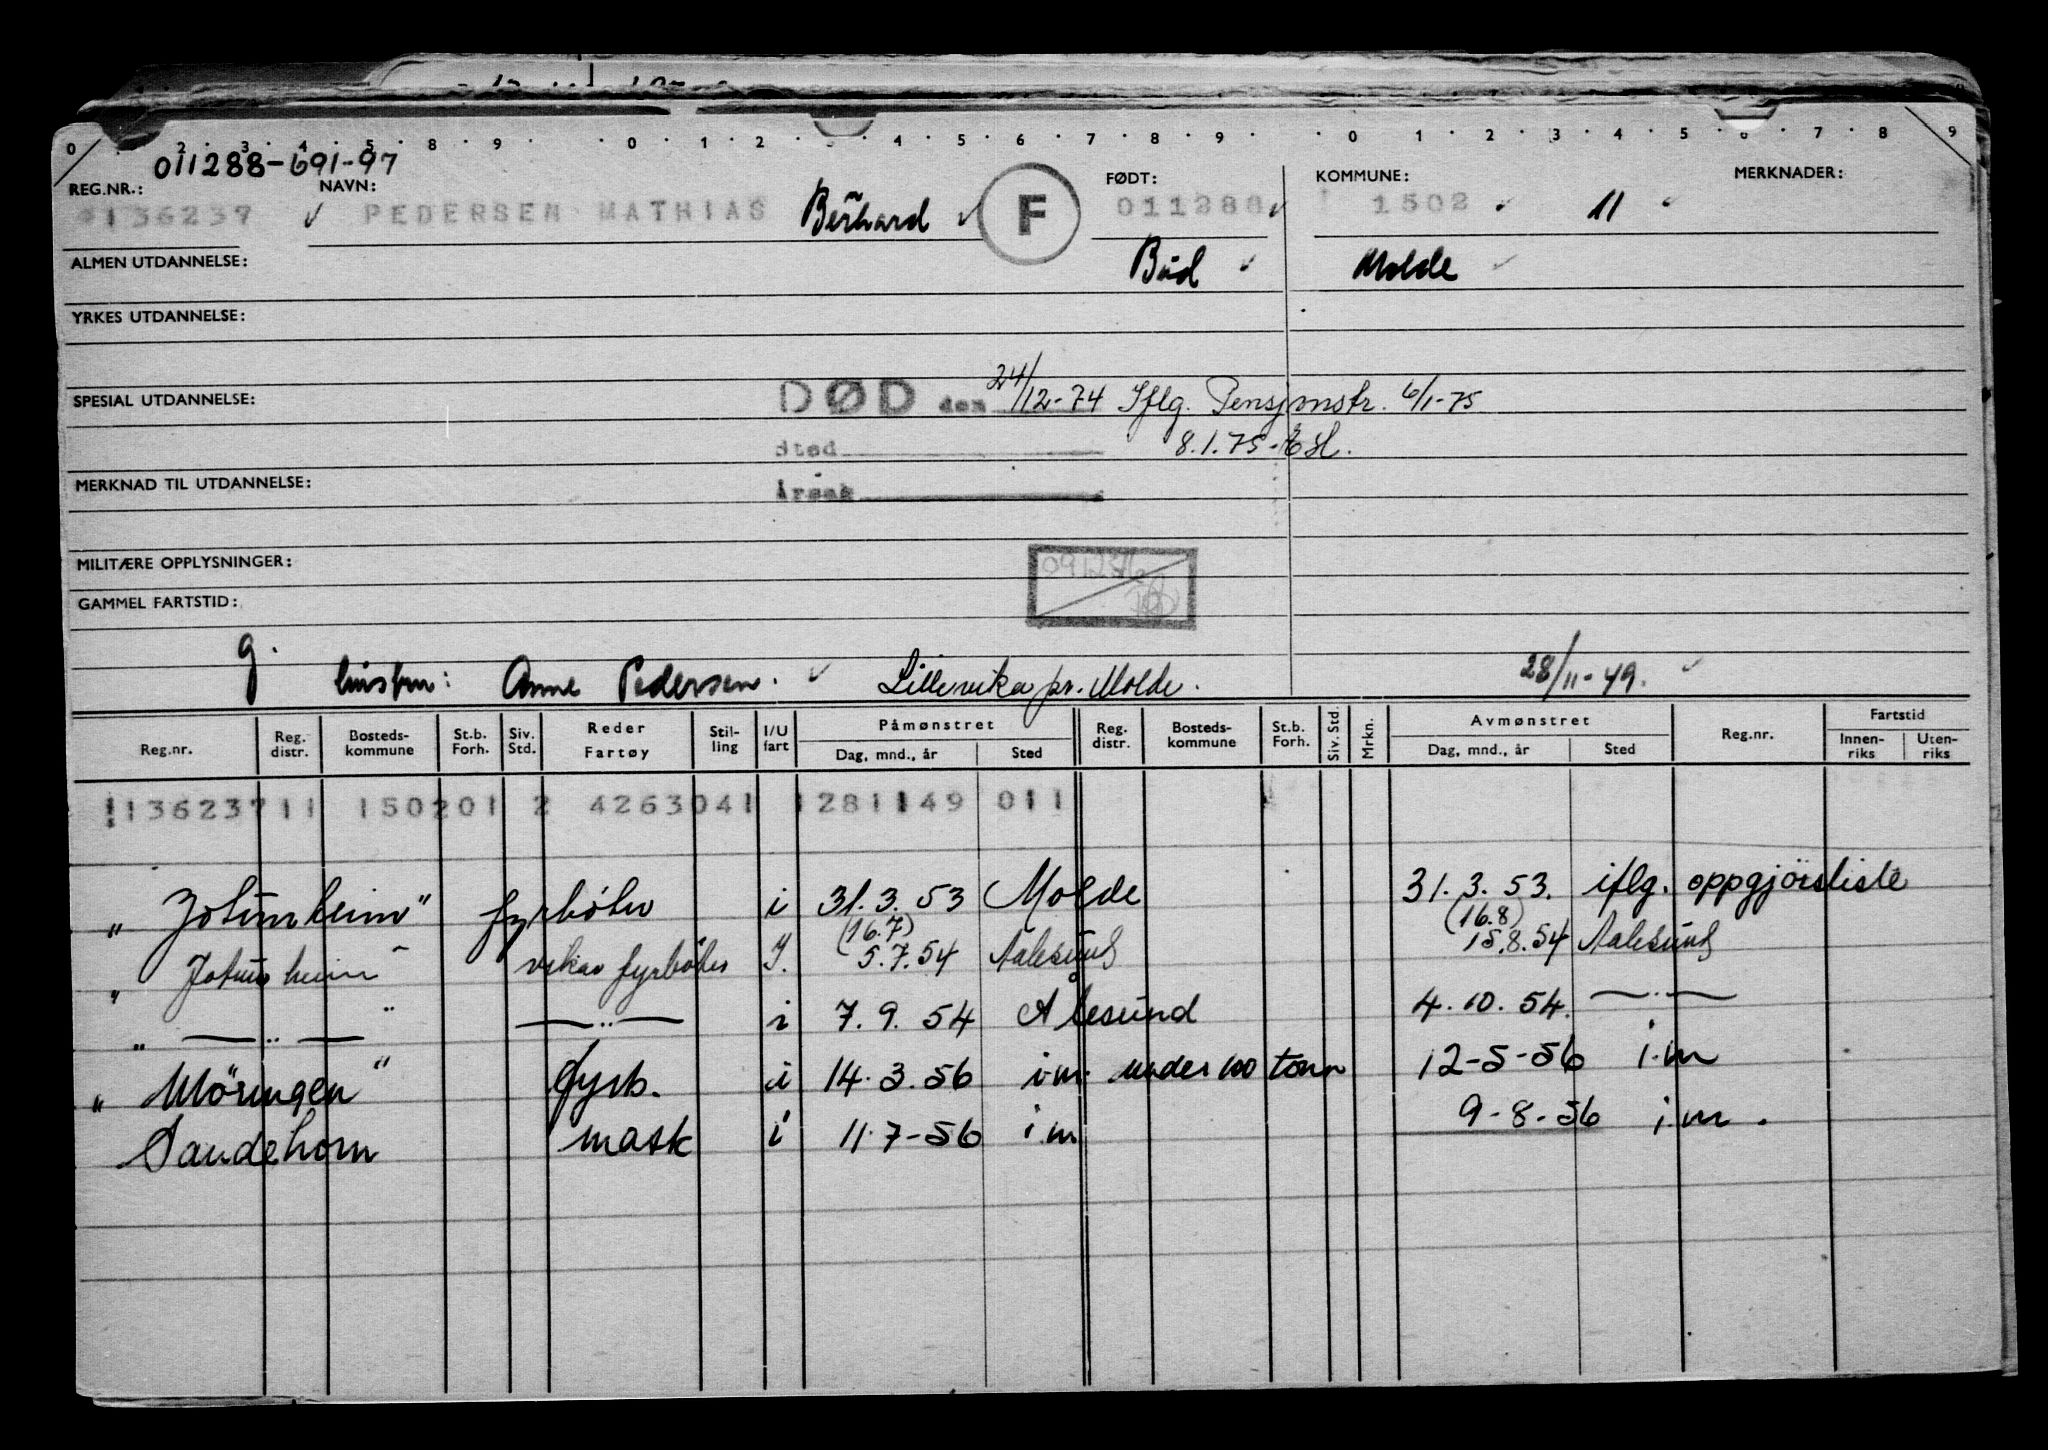 0 2 3 4 5 8 9 0 1 2 4 5 6 7 8 9 0 1 2 3 4 5 6 7 8 9
011288-691-97
REG.NR.: NAVN: FØDT: KOMMUNE: MERKNADER:
136237 ✓ PEDERSEN MATHIAS Bernhard ✓ F 011288 ✓ 1502 11
ALMEN UTDANNELSE: Bud Molde ✓
YRKES UTDANNELSE:
SPESIAL UTDANNELSE: DØD den 24/12-74 Iflg. Pensjonstr. 6/1-75
Sted 8.1.75-
MERKNAD TIL UTDANNELSE: Årsak
MILITÆRE OPPLYSNINGER:
GAMMEL FARTSTID:
g. hustru: Anne Pedersen. ✓ Lillevika pr. Molde. 28/11-49. ✓
Reg.nr. Reg. distr. Bosteds-kommune St.b. Forh. Siv. Std. Reder Fartøy Stil-ling I/U fart Påmønstret Dag, mnd., år Sted Reg. distr. Bosteds-kommune St.b. Forh. Siv. Std. Mrkn. Avmønstret Dag, mnd., år Sted Reg.nr. Fartstid Innen-riks Uten-riks
13623711 150201 2 4263041 1281149 011
" Jotunheim" fyrbøter i 31.3.53 Molde 31.3.53. iflg. oppgjörsliste
(16.7) (16.8)
" Jotunheim " vikar fyrbøter I. 5.7.54 Aalesund 15.8.54 Aalesund
" —..— " —..— i 7.9.54 Ålesund 4.10.54. —..—
" Möringen " fyrb. i 14.3.56 i.m. under 100 tonn 12-5-56 i.m
Sandehorn mask i 11.7-56 i.m 9-8-56 i.m.